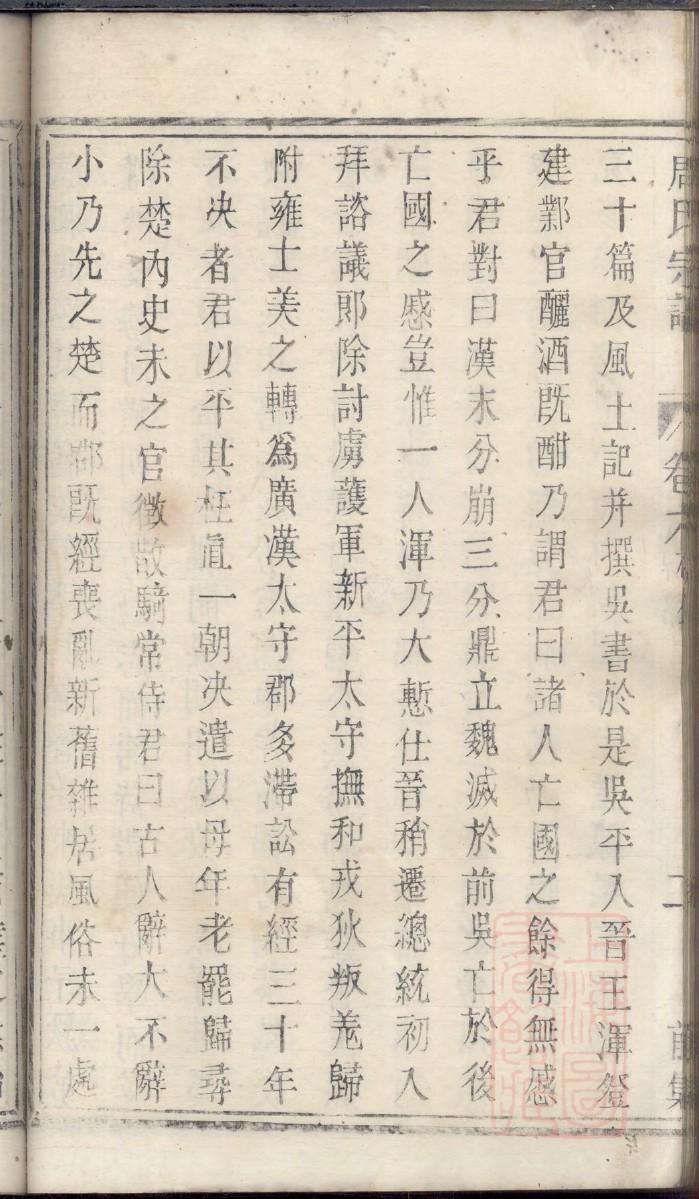 周氏宗譜 卷六 二
三十篇及風土記并撰吳書於是吳平入晉王渾登
建鄴宮釃酒既酣乃謂君曰諸人亡國之餘得無慼
乎君對曰漢末分崩三分鼎立魏滅於前吳亡於後
亡國之慼豈惟一人渾乃大慙仕晉稍遷總統初入
拜諮議郎除討虜護軍新平太守撫和戎狄叛羌歸
附雍士美之轉爲廣漢太守郡多滯訟有經三十年
不決者君以平其枉直一朝决遣以母年老罷歸尋
除楚內史未之官徵散騎常侍君曰古人辭大不辭
小乃先之楚而郡既經喪亂新舊雜居風俗未一處